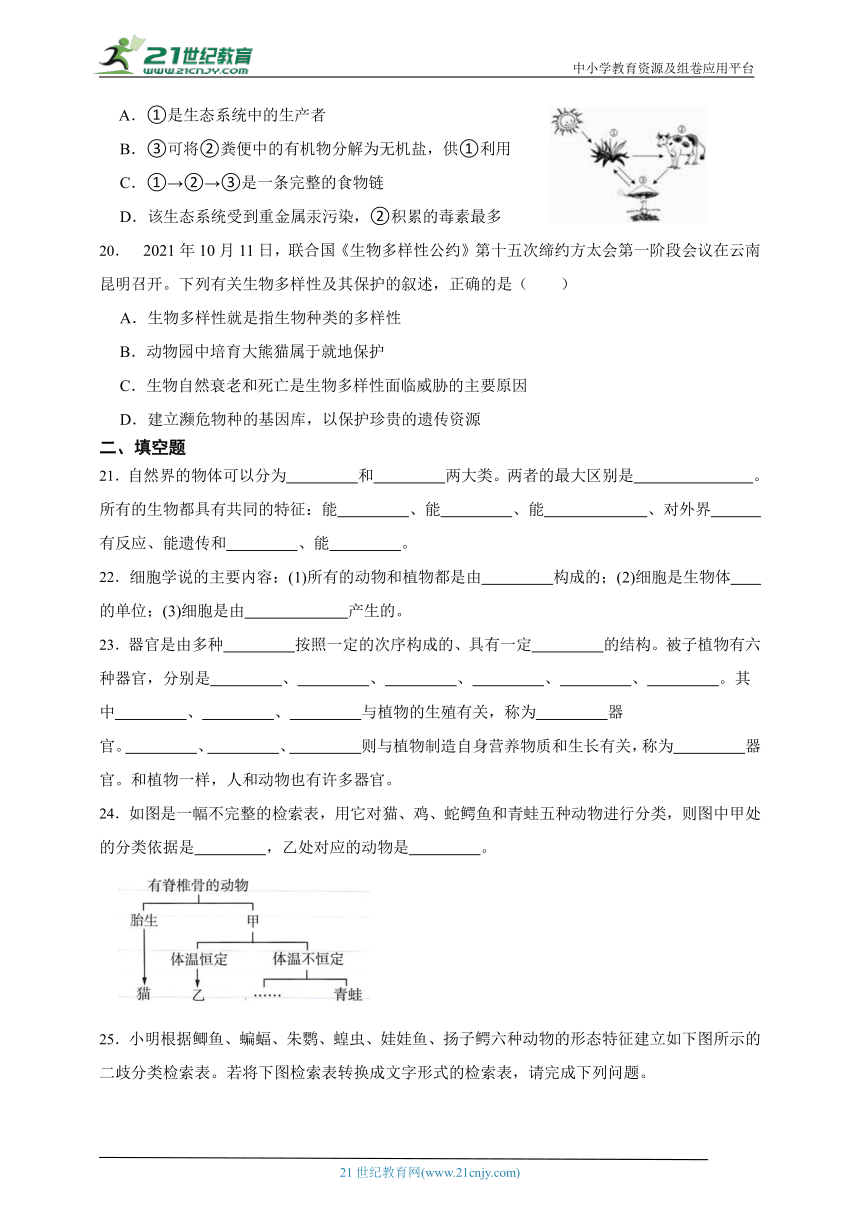 21世纪教育
WWW.21CNJY.COM
中小学教育资源及组卷应用平台
A．①是生态系统中的生产者
B．③可将②粪便中的有机物分解为无机盐，供①利用
C．①→②→③是一条完整的食物链
D．该生态系统受到重金属汞污染，②积累的毒素最多
① ② ③
20． 2021年10月11日，联合国《生物多样性公约》第十五次缔约方太会第一阶段会议在云南
昆明召开。下列有关生物多样性及其保护的叙述，正确的是（ ）
A．生物多样性就是指生物种类的多样性
B．动物园中培育大熊猫属于就地保护
C．生物自然衰老和死亡是生物多样性面临威胁的主要原因
D．建立濒危物种的基因库，以保护珍贵的遗传资源
二、填空题
21．自然界的物体可以分为 和 两大类。两者的最大区别是 。
所有的生物都具有共同的特征：能 、能 、能 、对外界
有反应、能遗传和 、能 。
22．细胞学说的主要内容：(1)所有的动物和植物都是由 构成的；(2)细胞是生物体
的单位；(3)细胞是由 产生的。
23．器官是由多种 按照一定的次序构成的、具有一定 的结构。被子植物有六
种器官，分别是 、 、 、 、 、 。其
中 、 、 与植物的生殖有关，称为 器
官。 、 、 则与植物制造自身营养物质和生长有关，称为 器
官。和植物一样，人和动物也有许多器官。
24．如图是一幅不完整的检索表，用它对猫、鸡、蛇鳄鱼和青蛙五种动物进行分类，则图中甲处
的分类依据是 ，乙处对应的动物是 。
有脊椎骨的动物
胎生 甲
体温恒定 体温不恒定
猫 乙 …… 青蛙
25．小明根据鲫鱼、蝙蝠、朱鹮、蝗虫、娃娃鱼、扬子鳄六种动物的形态特征建立如下图所示的
二歧分类检索表。若将下图检索表转换成文字形式的检索表，请完成下列问题。
21世纪教育网(www.21cnjy.com)